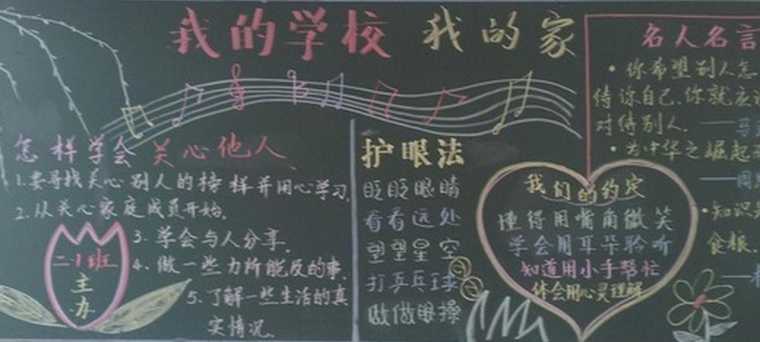 我的学校 我的家
怎样学会 关心他人
1.要寻找关心别人的榜样并用心学习.
2.从关心家庭成员开始.
3.学会与人分享.
4.做一些力所能及的事.
5.了解一些生活的真
实情况.
二.1班
主
办
护眼法
眨眨眼睛
看看远处
望望星空
打乒乓球
做做眼操
我们的约定
懂得用嘴角微笑
学会用耳朵聆听
知道用小手帮忙
体会用心灵理解
名人名言
·你希望别人怎
待你自己.你就应
对待别人.
·为中华之崛起
·知识
食粮.